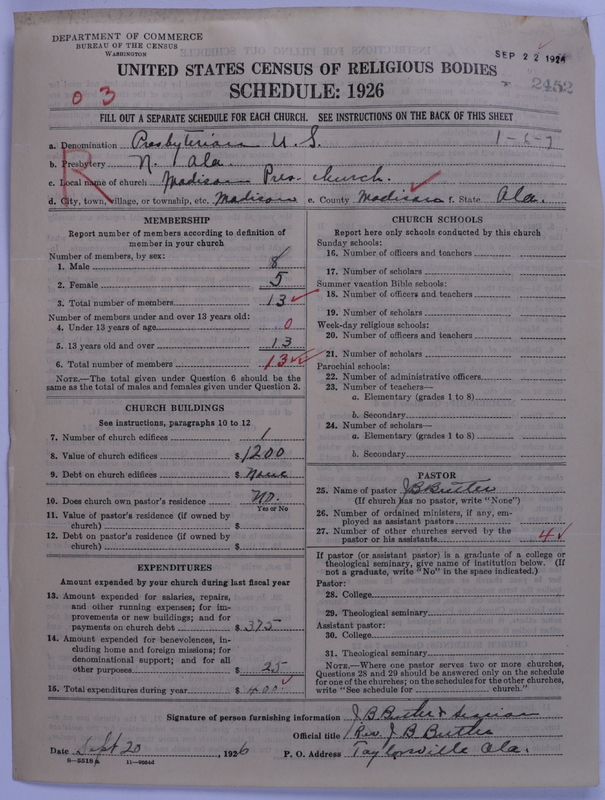 DEPARTMENT OF COMMERCE
BUREAU OF THE CENSUS
WASHINGTON
SEP 22 1926
2452
UNITED STATES CENSUS OF RELIGIOUS BODIES
SCHEDULE: 1926
0 3
FILL OUT A SEPARATE SCHEDULE FOR EACH CHURCH. SEE INSTRUCTIONS ON THE BACK OF THIS SHEET
a. Denomination Presbyterian U. S. 1-6-7
b. Presbytery N. Ala.
R
c. Local name of church Madison Pres. church.
d. City, town, village, or township, etc. Madison e. County Madison f. State Ala.
MEMBERSHIP
Report number of members according to definition of
member in your church
Number of members, by sex:
1. Male 8
2. Female 5
3. Total number of members 13
Number of members under and over 13 years old:
4. Under 13 years of age 0
5. 13 years old and over 13
6. Total number of members 13
NOTE.—The total given under Question 6 should be the
same as the total of males and females given under Question 3.
CHURCH BUILDINGS
See instructions, paragraphs 10 to 12
7. Number of church edifices 1
8. Value of church edifices $1200
9. Debt on church edifices $ None
10. Does church own pastor's residence No.
Yes or No
11. Value of pastor's residence (if owned by
church) $
12. Debt on pastor's residence (if owned by
church) $
EXPENDITURES
Amount expended by your church during last fiscal year
13. Amount expended for salaries, repairs,
and other running expenses; for im-
provements or new buildings; and for
payments on church debt $ 375
14. Amount expended for benevolences, in-
cluding home and foreign missions; for
denominational support; and for all
other purposes $ 25
15. Total expenditures during year $ 400
CHURCH SCHOOLS
Report here only schools conducted by this church
Sunday schools:
16. Number of officers and teachers
17. Number of scholars
Summer vacation Bible schools:
18. Number of officers and teachers
19. Number of scholars
Week-day religious schools:
20. Number of officers and teachers
21. Number of scholars
Parochial schools:
22. Number of administrative officers
23. Number of teachers—
a. Elementary (grades 1 to 8)
b. Secondary
24. Number of scholars—
a. Elementary (grades 1 to 8)
b. Secondary
PASTOR
25. Name of pastor J B Butler
(If church has no pastor, write "None")
26. Number of ordained ministers, if any, em-
ployed as assistant pastors
27. Number of other churches served by the
pastor or his assistants 4
If pastor (or assistant pastor) is a graduate of a college or
theological seminary, give name of institution below. (If
not a graduate, write "No" in the space indicated.)
Pastor:
28. College
29. Theological seminary
Assistant pastor:
30. College
31. Theological seminary
NOTE.—Where one pastor serves two or more churches,
Questions 28 and 29 should be answered only on the schedule
for one of the churches; on the schedules for the other churches,
write "See schedule for church."
Signature of person furnishing information J B Butler & Session
Official title Rev. J B Butler
Date Sept 20, 1926 P. O. Address Taylorsville Ala.